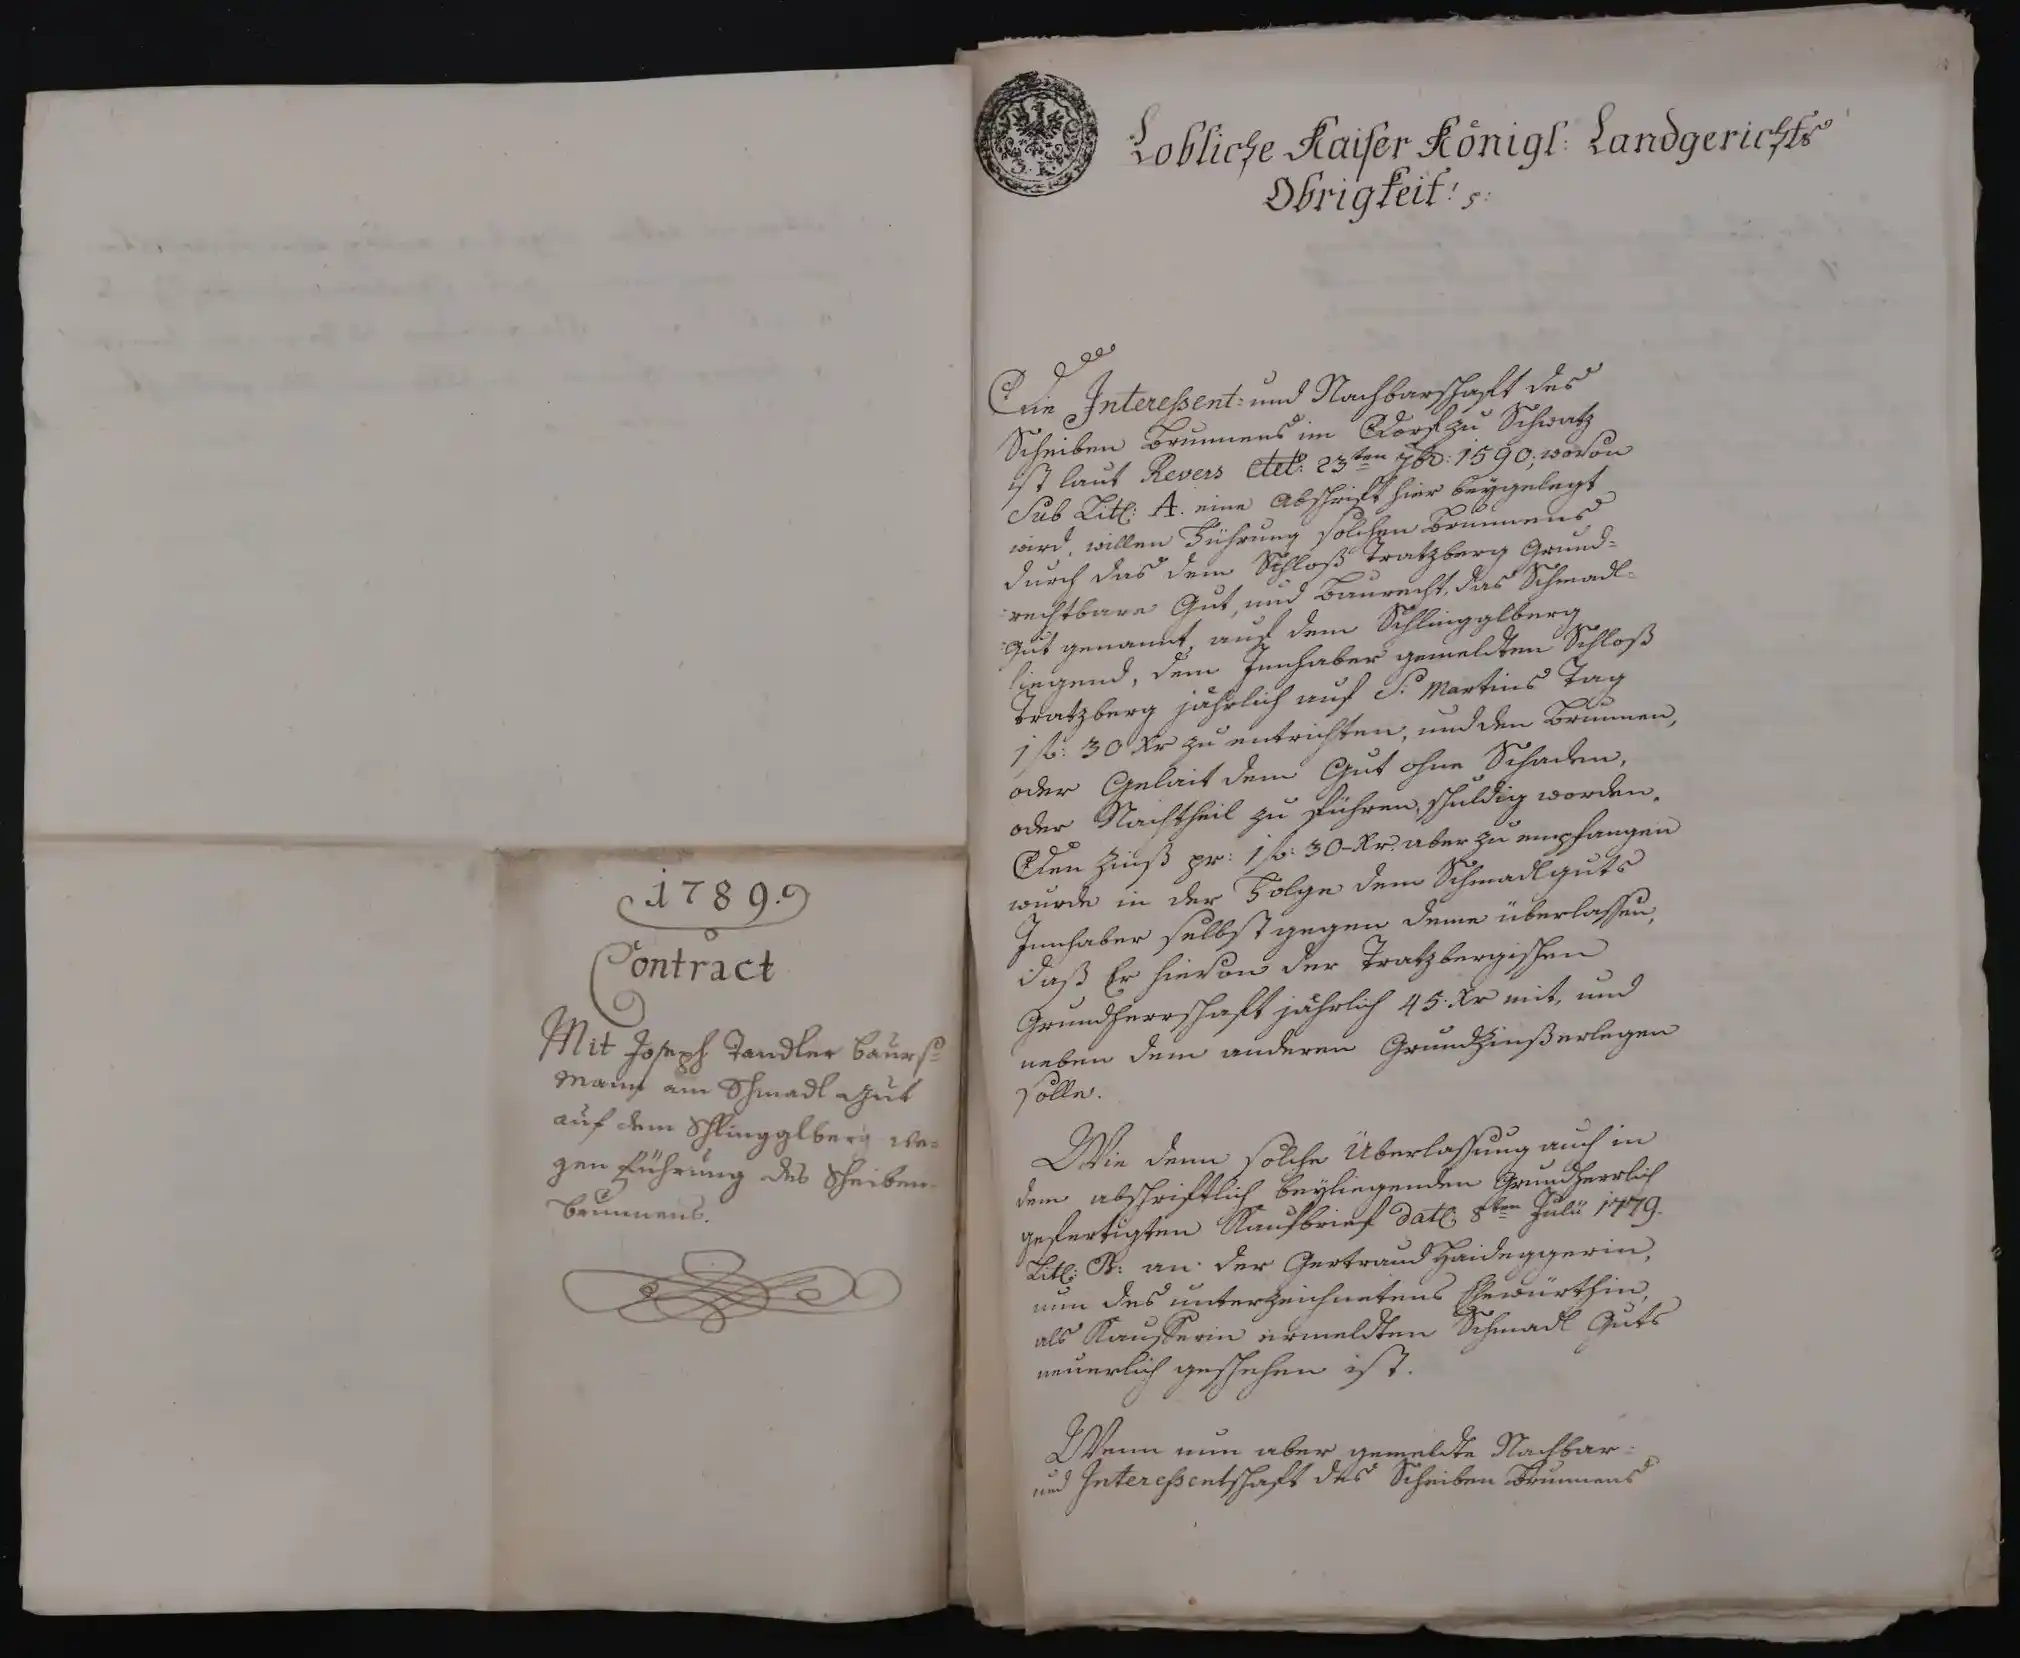 1789.
Contract
Mit Joseph Tandler Baurs=
Mann am Schmadl Gut
auf dem Schlingglberg we=
gen Führung des Scheiben=
Brunnens.
3. K.
Lobliche Kaiser Königl: Landgerichts
Obrigkeit!
Die Interessent= und Nachbarschaft des
Scheiben Brunnens im Dorf zu Schwatz
ist laut Revers 23ten 7br: 1590, wovon
Sub Litt: A. eine Abschrift hier beygelegt
wird, willen Führung solchen Brunnens
durch das dem Schloß Tratzberg Grund=
rechtbare Gut, und Baurecht, das Schmadl=
Gut genannt, auf dem Schlingglberg
liegend, dem Innhaber gemeldten Schloß
Tratzberg jährlich auf S: Martins Tag
1 fl: 30 Kr zu entrichten, und den Brunnen,
oder Gelait dem Gut ohne Schaden,
oder Nachtheil zu führen, schuldig worden.
Den Zinß pr: 1 fl: 30 Kr. aber zu empfangen
wurde in der Folge dem Schmadlguts
Innhaber selbst gegen deme überlassen,
daß Er hievon der Tratzbergischen
Grundherrschaft jährlich 45. Kr mit, und
neben dem anderen Grundzinß erlegen
solle.
Wie denn solche Überlassung auch in
dem abschriftlich beyliegenden Grundherrlich
gefertigten Kaufbrief datt: 8ten Julii 1779.
Litt: B: an der Gertraud Haideggerin,
nun des unterzeichnetens Ehewürthin,
als Kaufferin ermeldten Schmadl Guts
neuerlich geschehen ist.
Wenn nun aber gemeldte Nachbar=
und Interessentschaft des Scheiben Brunnens